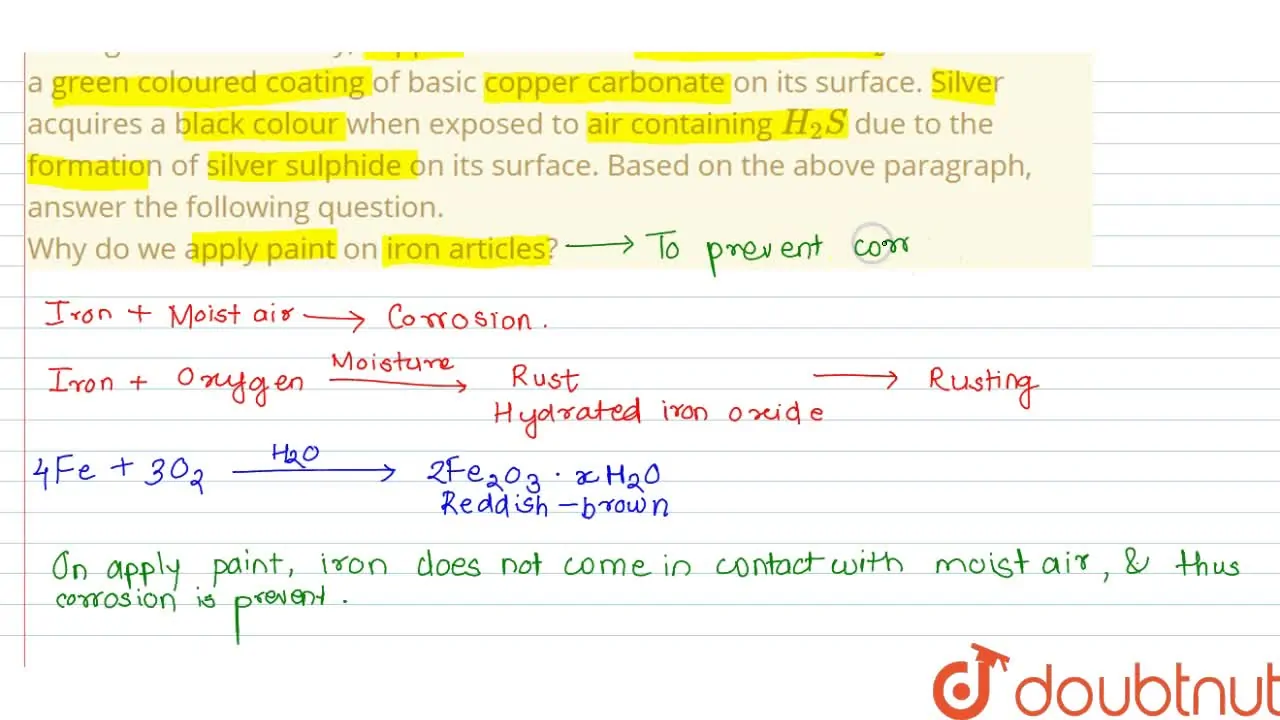 a green coloured coating of basic copper carbonate on its surface. Silver
acquires a black colour when exposed to air containing H₂S due to the
formation of silver sulphide on its surface. Based on the above paragraph,
answer the following question.
Why do we apply paint on iron articles? → To prevent corr
Iron + Moist air → Corrosion.
Iron + Oxygen Moisture → Rust → Rusting
Hydrated iron oxide
4Fe + 3O₂ H₂O → 2Fe₂O₃ · xH₂O
Reddish – brown
On apply paint, iron does not come in contact with moist air, & thus
corrosion is prevent.
doubtnut